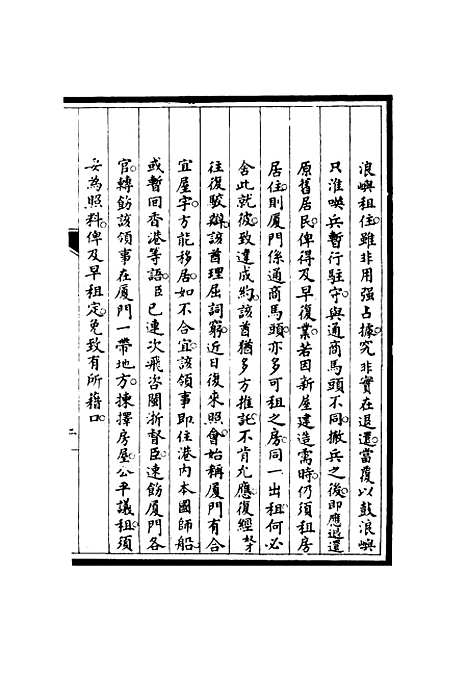 浪嶼租住。雖非用强占據。究非實在退還。當覆以鼓浪嶼
只准暎兵暫行駐守。與通商馬頭不同。撤兵之後。即應退還
原舊居民。俾得及早復業。若因新屋建造需時。仍須租房
居住。則厦門係通商馬頭。亦多可租之房。同一出租。何必
舍此就彼。致違成約。該酋猶多方推託。不肯允應。復經奴才
往復駁辦。該酋理屈詞窮。近日復來照會。始稱厦門有合
宜屋宇。方能移居。如不合宜。該領事即住港内本國師船。
或暫回香港等語。臣已連次飛咨閩浙督臣。速飭厦門各
官。轉飭該領事在厦門一帶地方。揀擇房屋。公平議租。須
妥為照料。俾及早租定。免致有所藉口。
二